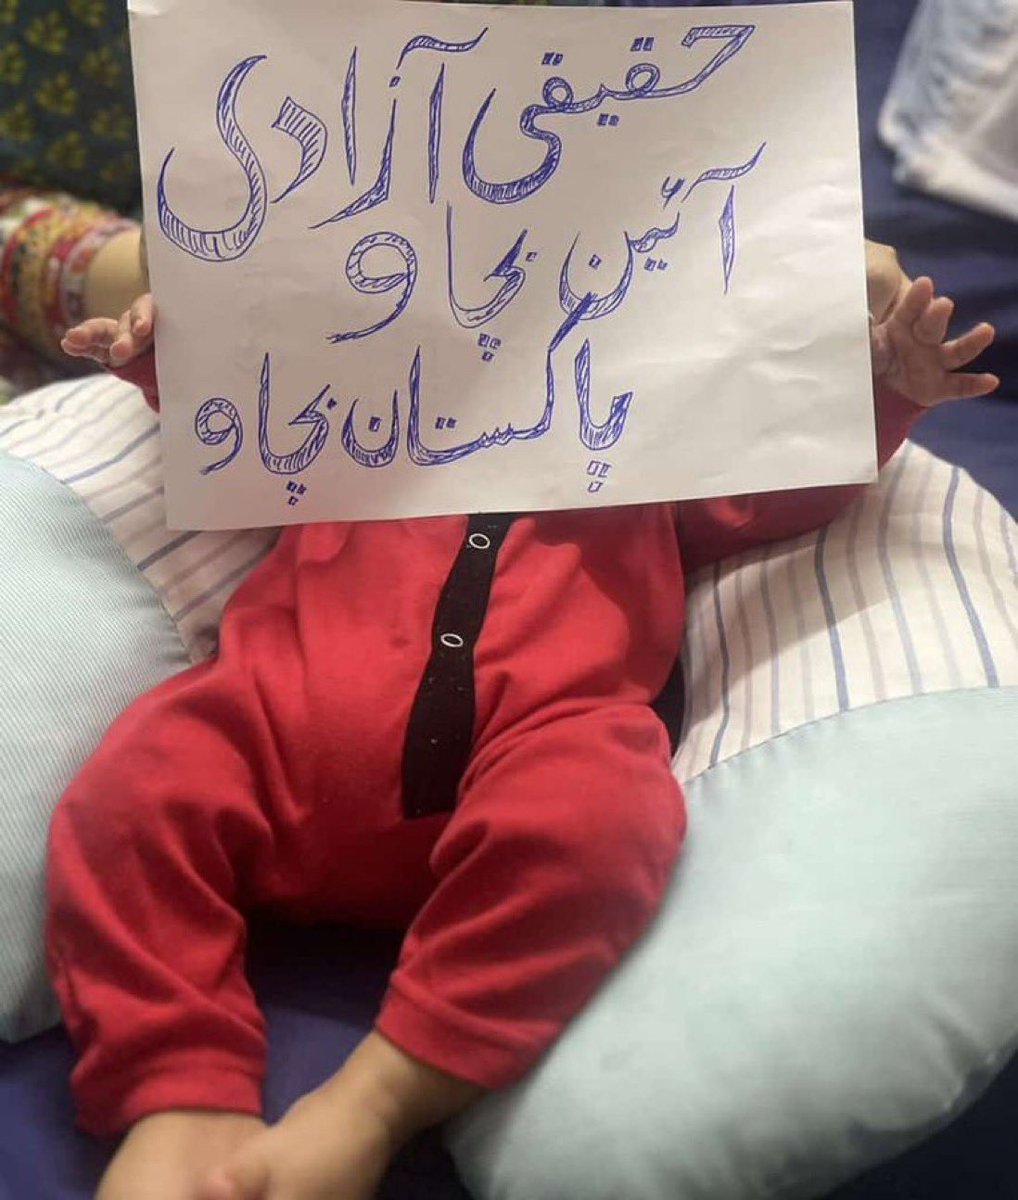 حقیقی آزادی
آئین بچاو
پاکستان بچاو